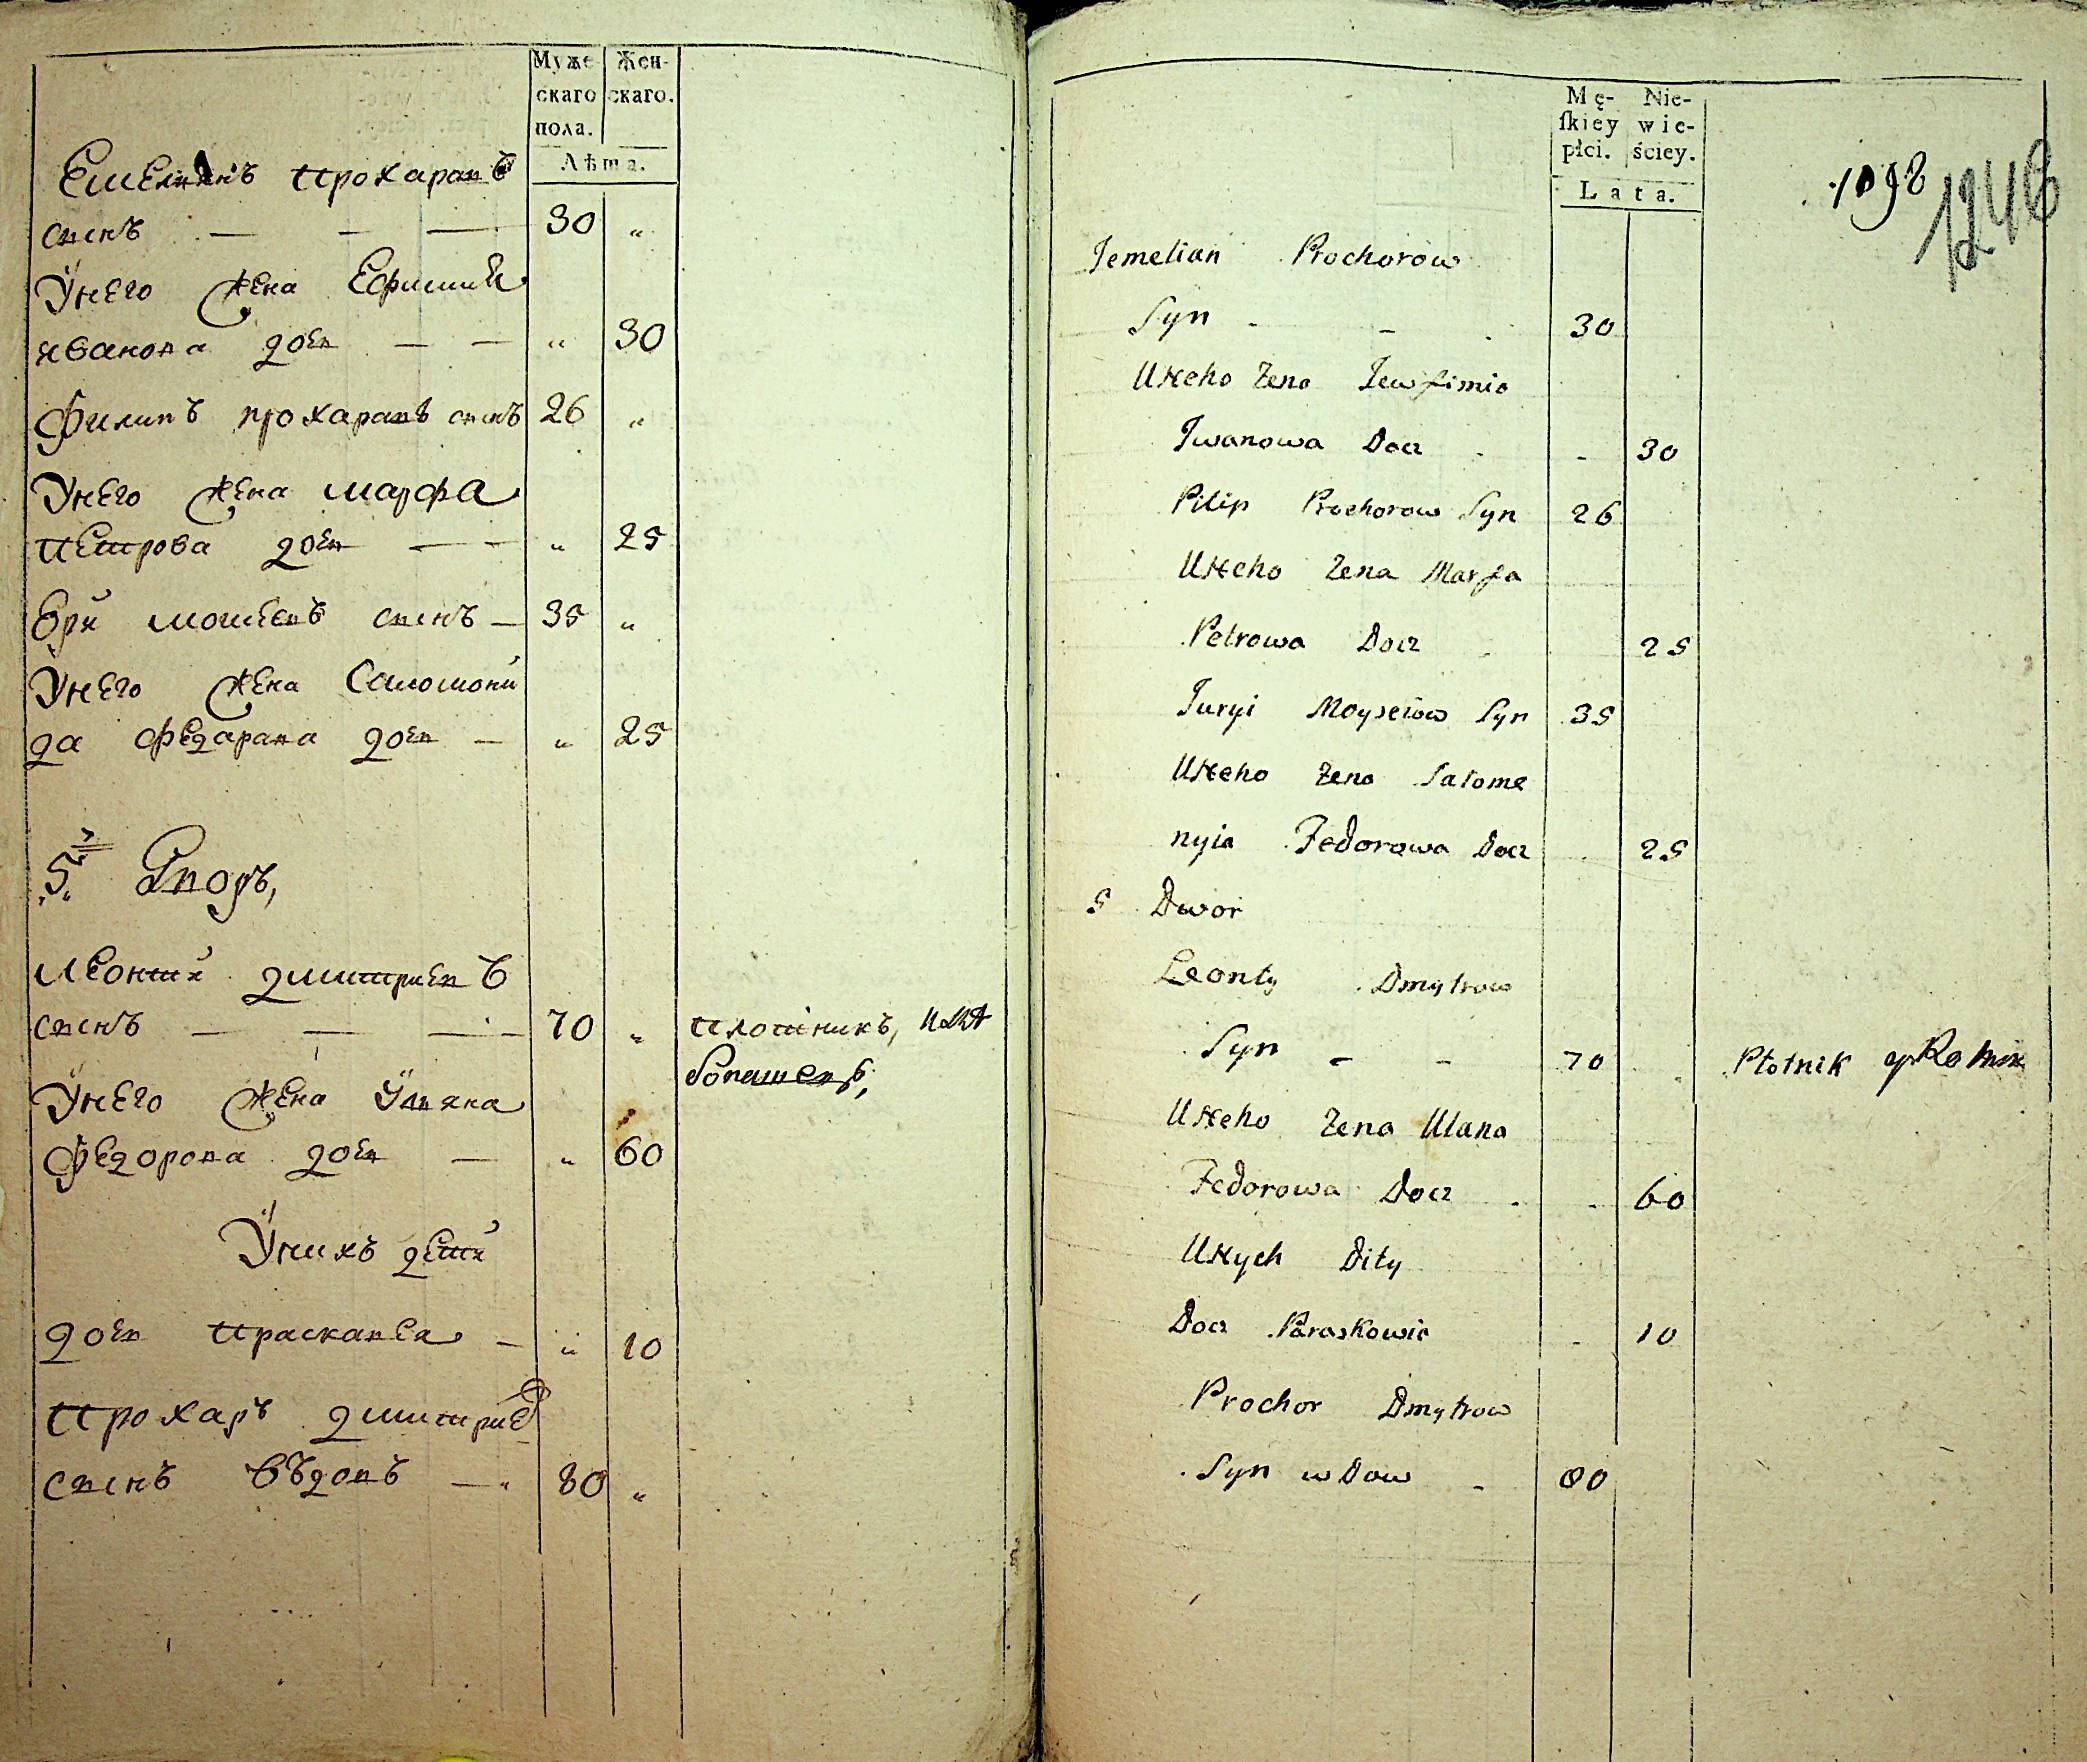 Муже-
скаго
пола.
Жен-
скаго.
Лѣта.
Емельянъ Прохаравъ
сынъ — — — 30 "
У него жена Ефимия
Ивановa дочь — — " 30
Филипъ Прохаравъ сынъ 26 "
У него жена Марфа
Петрова дочь — — " 25
Юри Мосѣевъ сынъ — 35 "
У него жена Саломони
да Федарава дочь — " 25
5й Дворъ,
Леонтий Дмитриевъ
сынъ — — — 70 " Плотникъ,
У него жена Ульяна
Федорова дочь — " 60
У нихъ дети
дочь Праскавея — " 10
Прохаръ Дмитриевъ
сынъ въдовъ — 80 "
Mę-
skiey
płci.
Nie-
wie-
ściey.
Lata.
1098
1246
Jemelian Prochorow
Syn - - . 30
U Neho Żena Jewfimia
Iwanowa Docz - - 30
Pilip Prochorow Syn 26
U Neho Żena Marfa
Petrowa Docz - 25
Juryi Moyseiow Syn 35
U Neho Żena Salome
nyia Fedorowa Docz 25
5 Dwor
Leonty Dmytrow
Syn - - 70 Płotnik y Rolnik
U Neho Żena Ulana
Fedorowa Docz - - 60
U Nych Dity
Docz Paraskowia - 10
Prochor Dmytrow
Syn wDow - 80